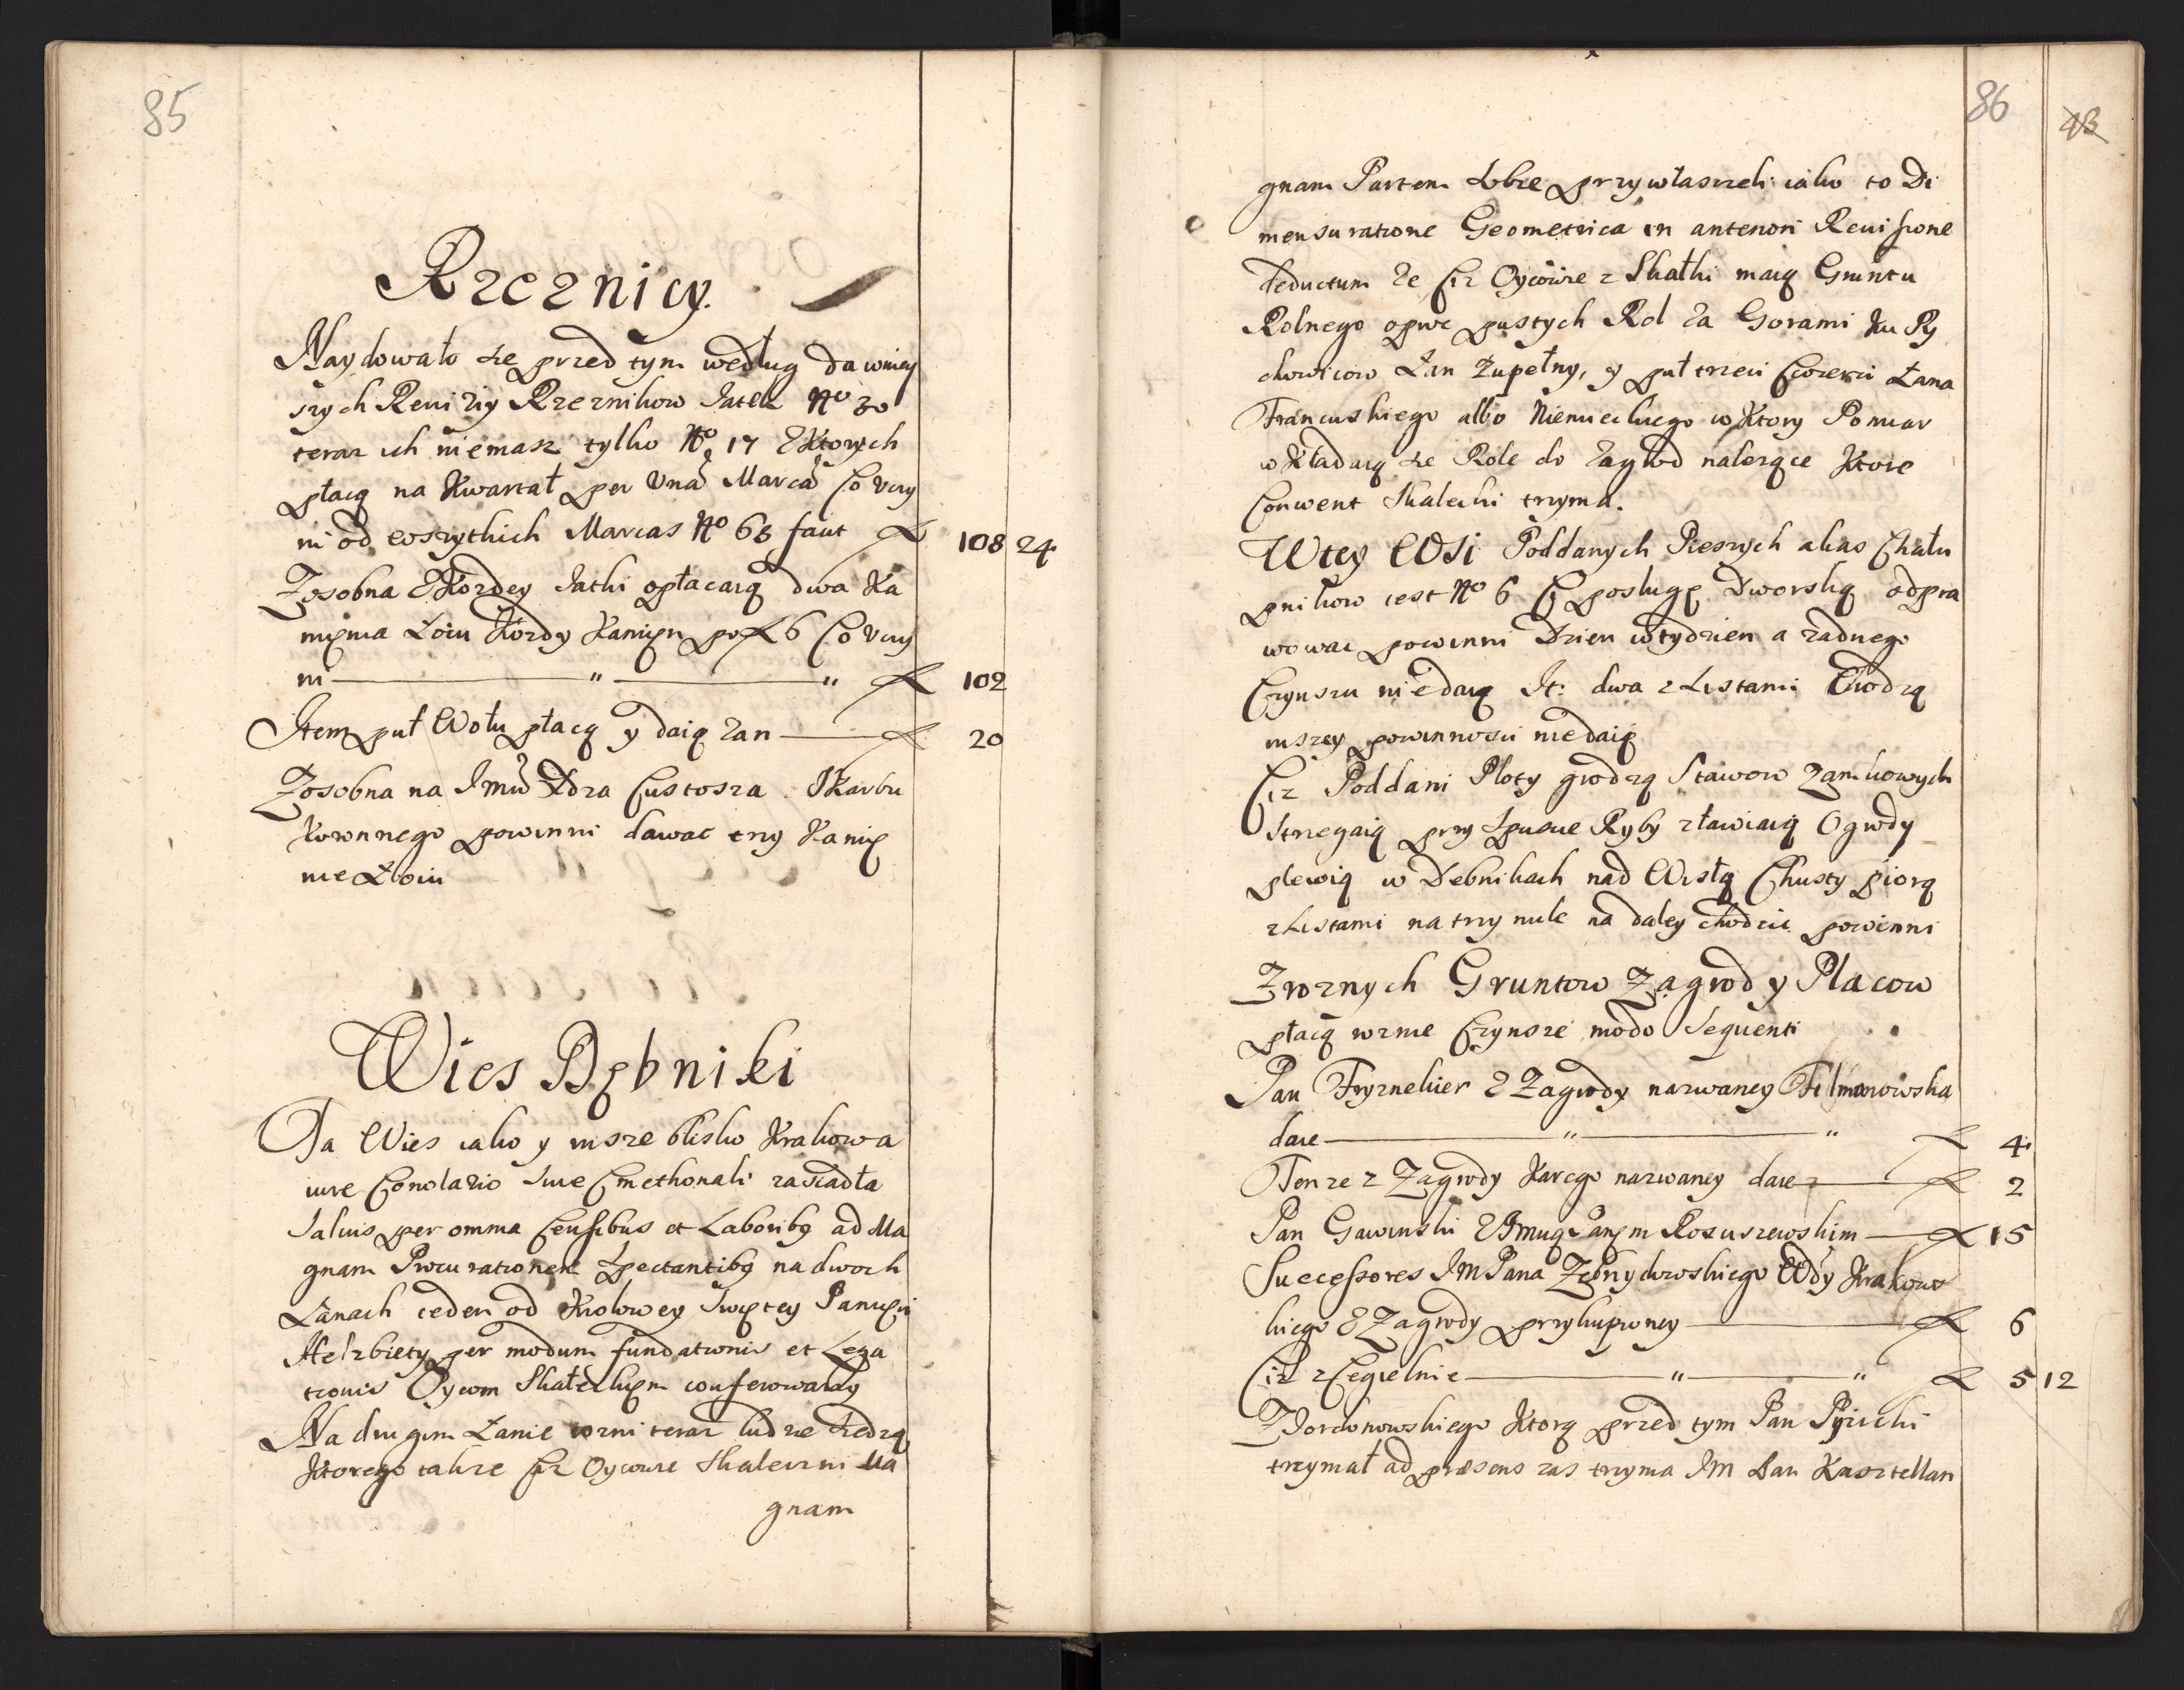 85
Rzeznicy.
Naydowało sie przed tym według dawniey
szych Rewiziy Rzeznikow Jatek No 30
teraz ich niemasz tylko No 17 Zktorych
płacą na Kwartał per Vna Marca Co vczy
ni od wszytkich Marcas No 68 faut
108 24
Zosobna Zkozdey Jatki opłacaią dwa Ka
mięma Łoiu kozdy Kamięn po 6 Co vczy
ni " "
102
Item puł Wołu płacą y daią zan
20
Zosobna na Imu Xdza Custosza Skarbu
koronnego powinni dawac trzy Kamię
nie Łoiu
Wies Dębniki
Ta Wies iako y insze blisko Krakowa
iure Conolario siue Cmethonali zasiadła
Saluis per omnia Censibus et Laboribg ad Ma
gnam Procurationem Spectantibg na dwoch
Łanach ieden od Krolowey Swiętey Panięi
Helzbiety per modum fundationis et Lega
tionis Oycom Skałeckięm conferowany
Na drugim Łanie rozni teraz ludzie siedzą
ktorego takze Ciz Oycowie Skaleczni Ma
gnam
86
43
gnam Partem Sobie przywłaszczeli iako to Di
mensuratione Geometrica in anteriori Reuisione
deductum ze Ciz Oycowie z Skałki maią Gruntu
Rolnego oprocz pustych Rol za Gorami ku Py
chowicow Łan Zupełny, y puł trzeci Czwerci Łana
Francuskiego albo Niemieckiego w ktory Pomiar
wkładaią sie Role do Zagrod nalezące ktore
Conwent Skalecki trzyma.
Wtey Wsi Poddanych Pieszych alias Chału
pnikow iest No 6 Ci posługę Dworską odpra
wowac powinni Dzien wtydzien a zadnego
Czynszu niedaią It: dwa z Listami Chodzą
inszey powinnosci niedaią
Ciz Poddani Płoty grodzą Stawow Zamkowych
Strzegaią przy Spuscie Ryby zławiaią Ogrody
plewią w Debnikach nad Wisłą Chusty piorą
z Listami na trzy mile na daley chodzic powinni
Zroznych Gruntow Zagrod y Placow
płacą rozne Czynsze modo Sequenti
Pan Fryznekier Z Zagrody nazwaney Filmanowska
daie " "
4
Tenze z Zagrody Karego nazwaney daie
2
Pan Gawinski ZImug Panęm Rosuszewskim
15
Successores IMPana Zebrzydowskiego Wdy Krakows
kiego Z Zagrody przykupioney
6
Ciz z Cegielnie " "
5 12
ZJordonowskiego ktorą przed tym Pan Pyricki
trzymał ad præsens zas trzyma IM Pan Kasztellan